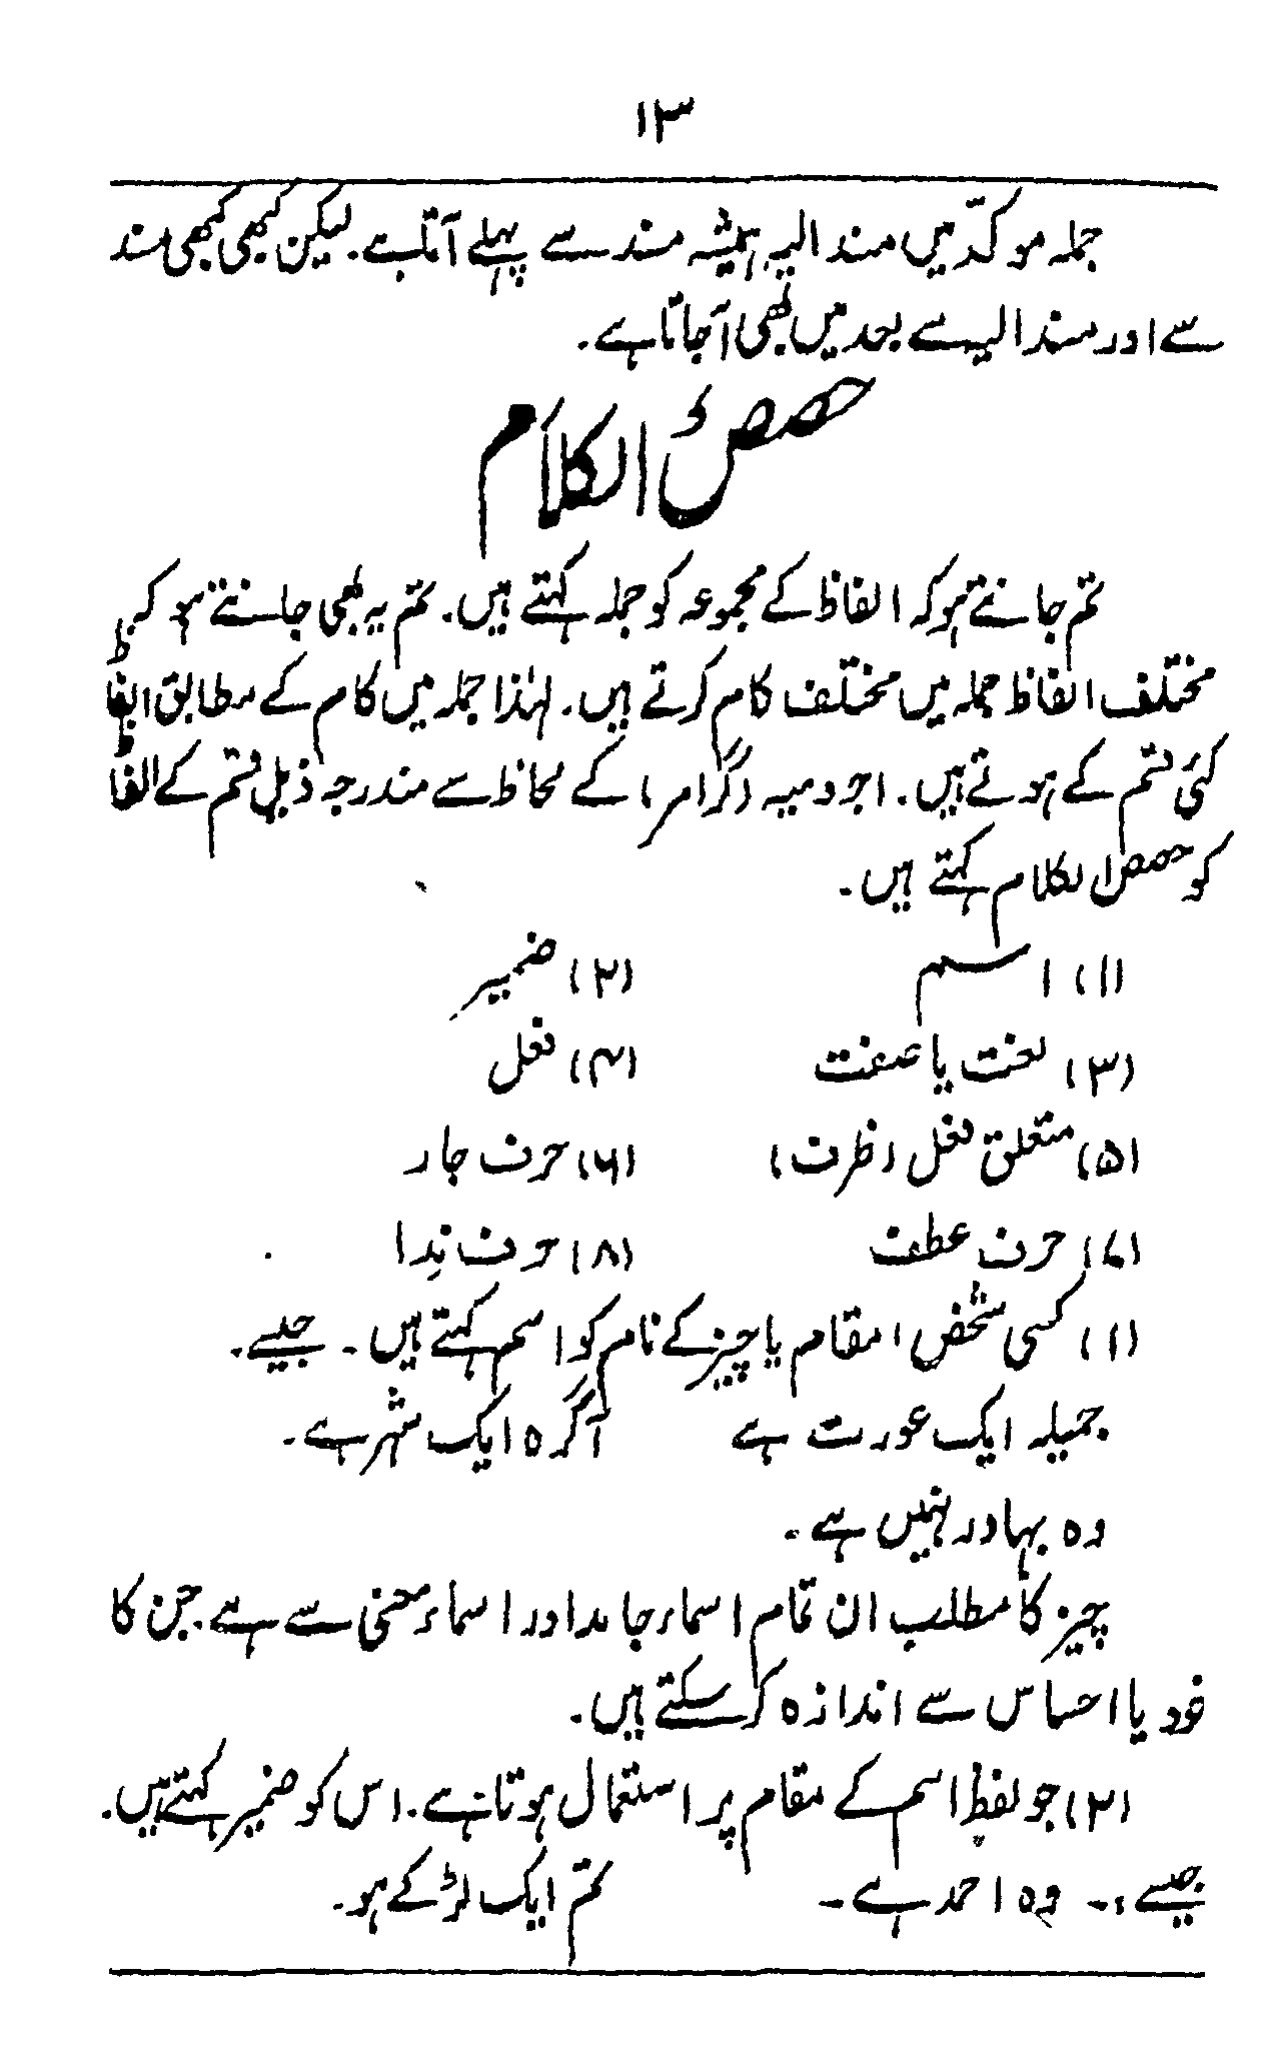 ۱۳
جملہ موکدّ میں مسند الیہ ہمیشہ مسند سے پہلے آتا ہے۔ لیکن کبھی کبھی مسند
سے اور مسند الیہ سے بعد میں بھی آ جاتا ہے۔
حصصُ الکلام
تم جانتے ہو کہ الفاظ کے مجموعہ کو جملہ کہتے ہیں۔ تم یہ بھی جانتے ہو کہ
مختلف الفاظ جملہ میں مختلف کام کرتے ہیں۔ لہٰذا جملہ میں کام کے مطابق الفاظ
کئی قسم کے ہوتے ہیں۔ اجرومیہ (گرامر) کے لحاظ سے مندرجہ ذیل قسم کے الفاظ
کو حصص الکلام کہتے ہیں۔
(۱) اسم (۲) ضمیر
(۳) نعت یا صفت (۴) فعل
(۵) متعلق فعل (ظرف) (۶) حرف جار
(۷) حرف عطف (۸) حرف نِدا
(۱) کسی شخص، مقام یا چیز کے نام کو اسم کہتے ہیں۔ جیسے۔
جمیلہ ایک عورت ہے آگرہ ایک شہر ہے۔
وہ بہادر نہیں ہے۔
چیز کا مطلب ان تمام اسماء جامد اور اسماء معنی سے ہے۔ جن کا
خود یا احساس سے اندازہ کر سکتے ہیں۔
(۲) جو لفظ اسم کے مقام پر استعمال ہوتا ہے۔ اس کو ضمیر کہتے ہیں۔
جیسے :۔ وہ احمد ہے۔ تم ایک لڑکے ہو۔